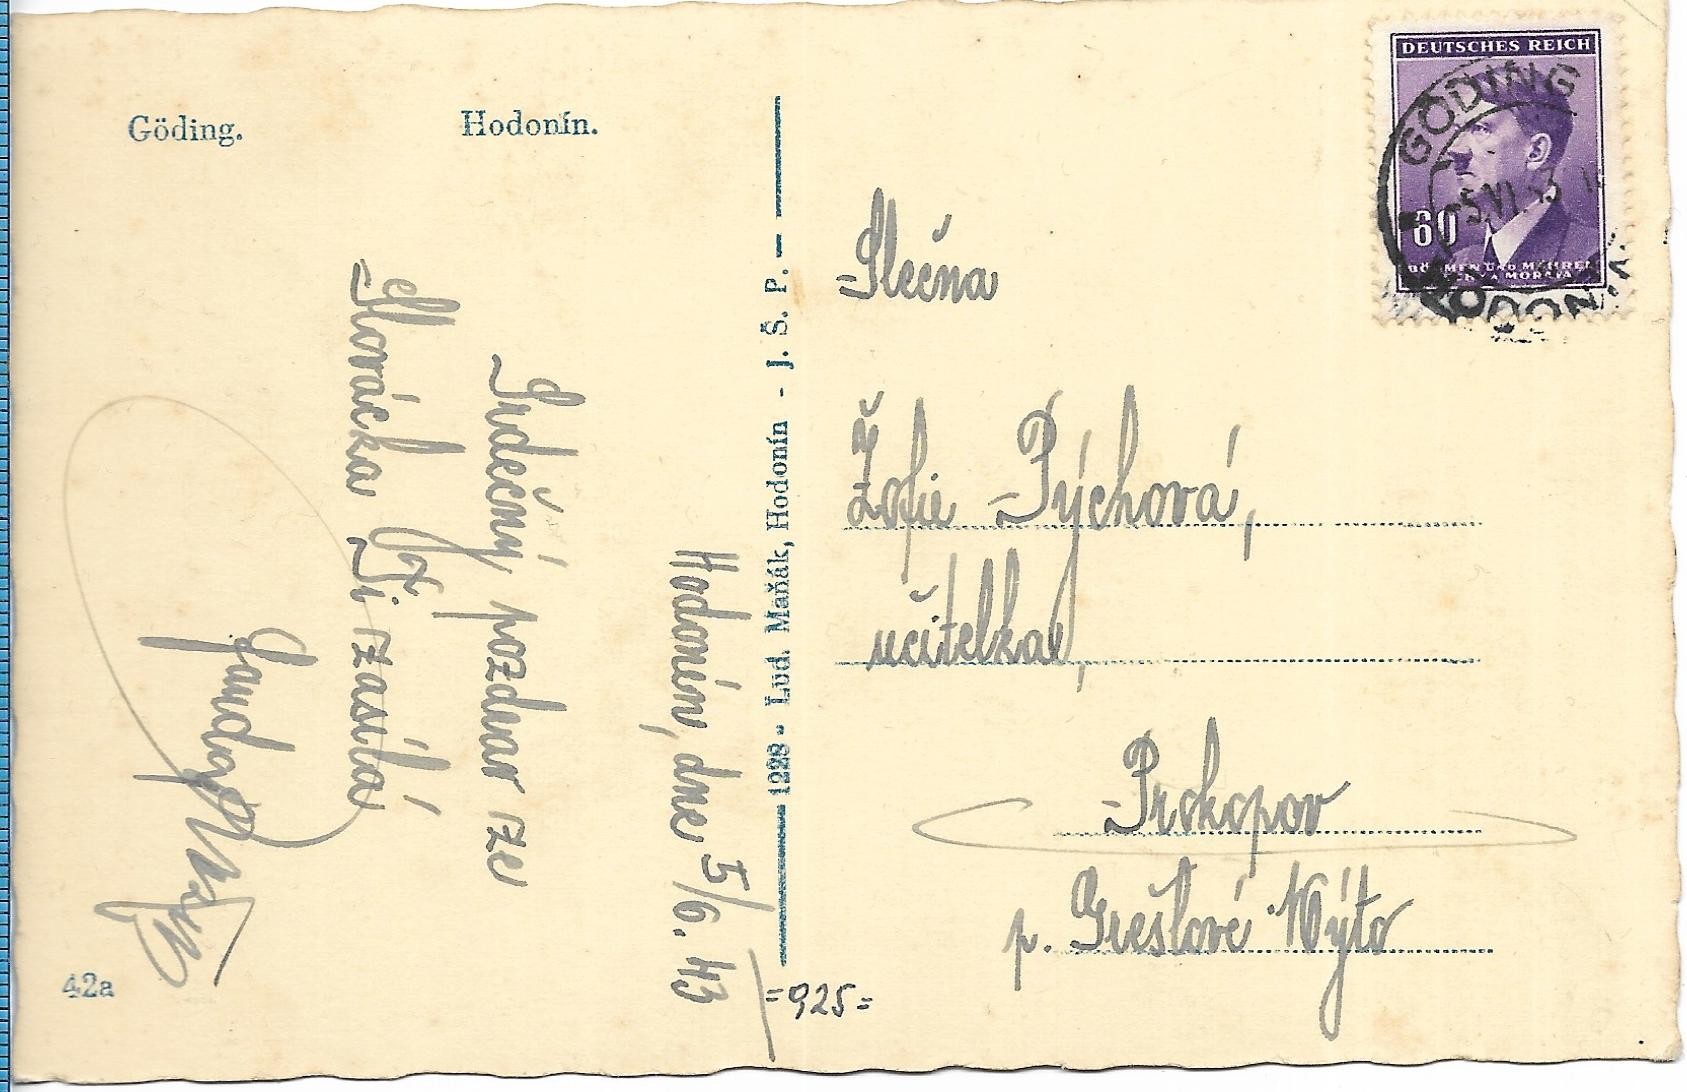 Göding. Hodonín.
Hodonín, dne 5/6. 43
Srdečný pozdrav ze
Slovácka Ti zasílá
1228 - Lud. Maňák, Hodonín - J. Š. P.
42a
=925=
DEUTSCHES REICH
GÖDING
5.VI.43
60
BÖHMEN UND MÄHREN
ČECHY A MORAVA
HODONÍN
Slečna
Žofie Pýchová,
učitelka,
Prokopov
p. Grešlové Mýto